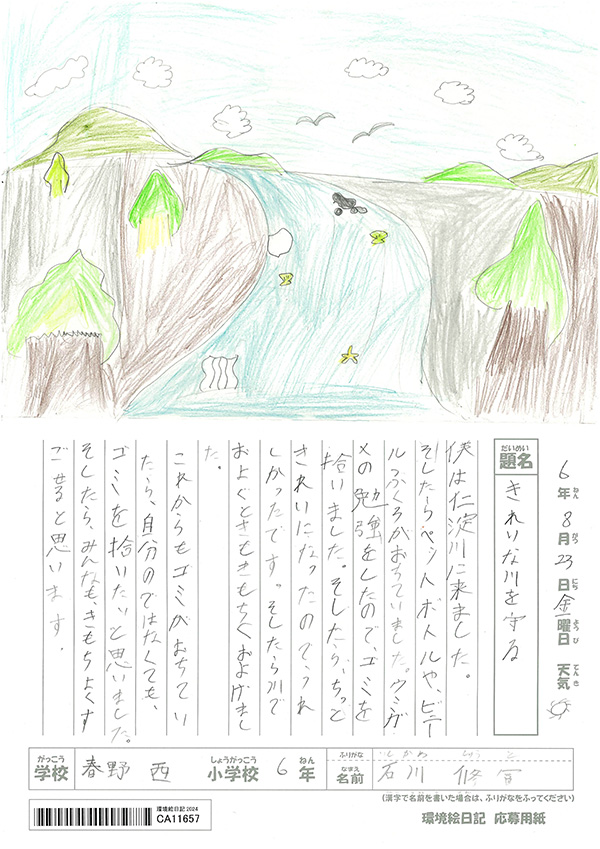 6年8月23日金曜日 天気
ねん がつ にち ようび てんき
だいめい
題名
きれいな川を守る
僕は仁淀川に来ました。
そしたらペットボトルや、ビニー
ルふくろがおちていました。ウミガ
メの勉強をしたので、ゴミを
拾いました。そしたら、ちょっと
きれいになったのでうれ
しかったです。そしたら川で
およぐときもきもちくおよげまし
た。
これからもゴミがおちてい
たら、自分のではなくても、
ゴミを拾いたいと思いました。
そしたら、みんなも、きもちよくす
ごせると思います。
がっこう しょうがっこう ねん
学校 春野西 小学校 6年
ふりがな
なまえ
名前 石川
(漢字で名前を書いた場合は、ふりがなをふってください)
環境絵日記 2024
CA11657
環境絵日記 応募用紙